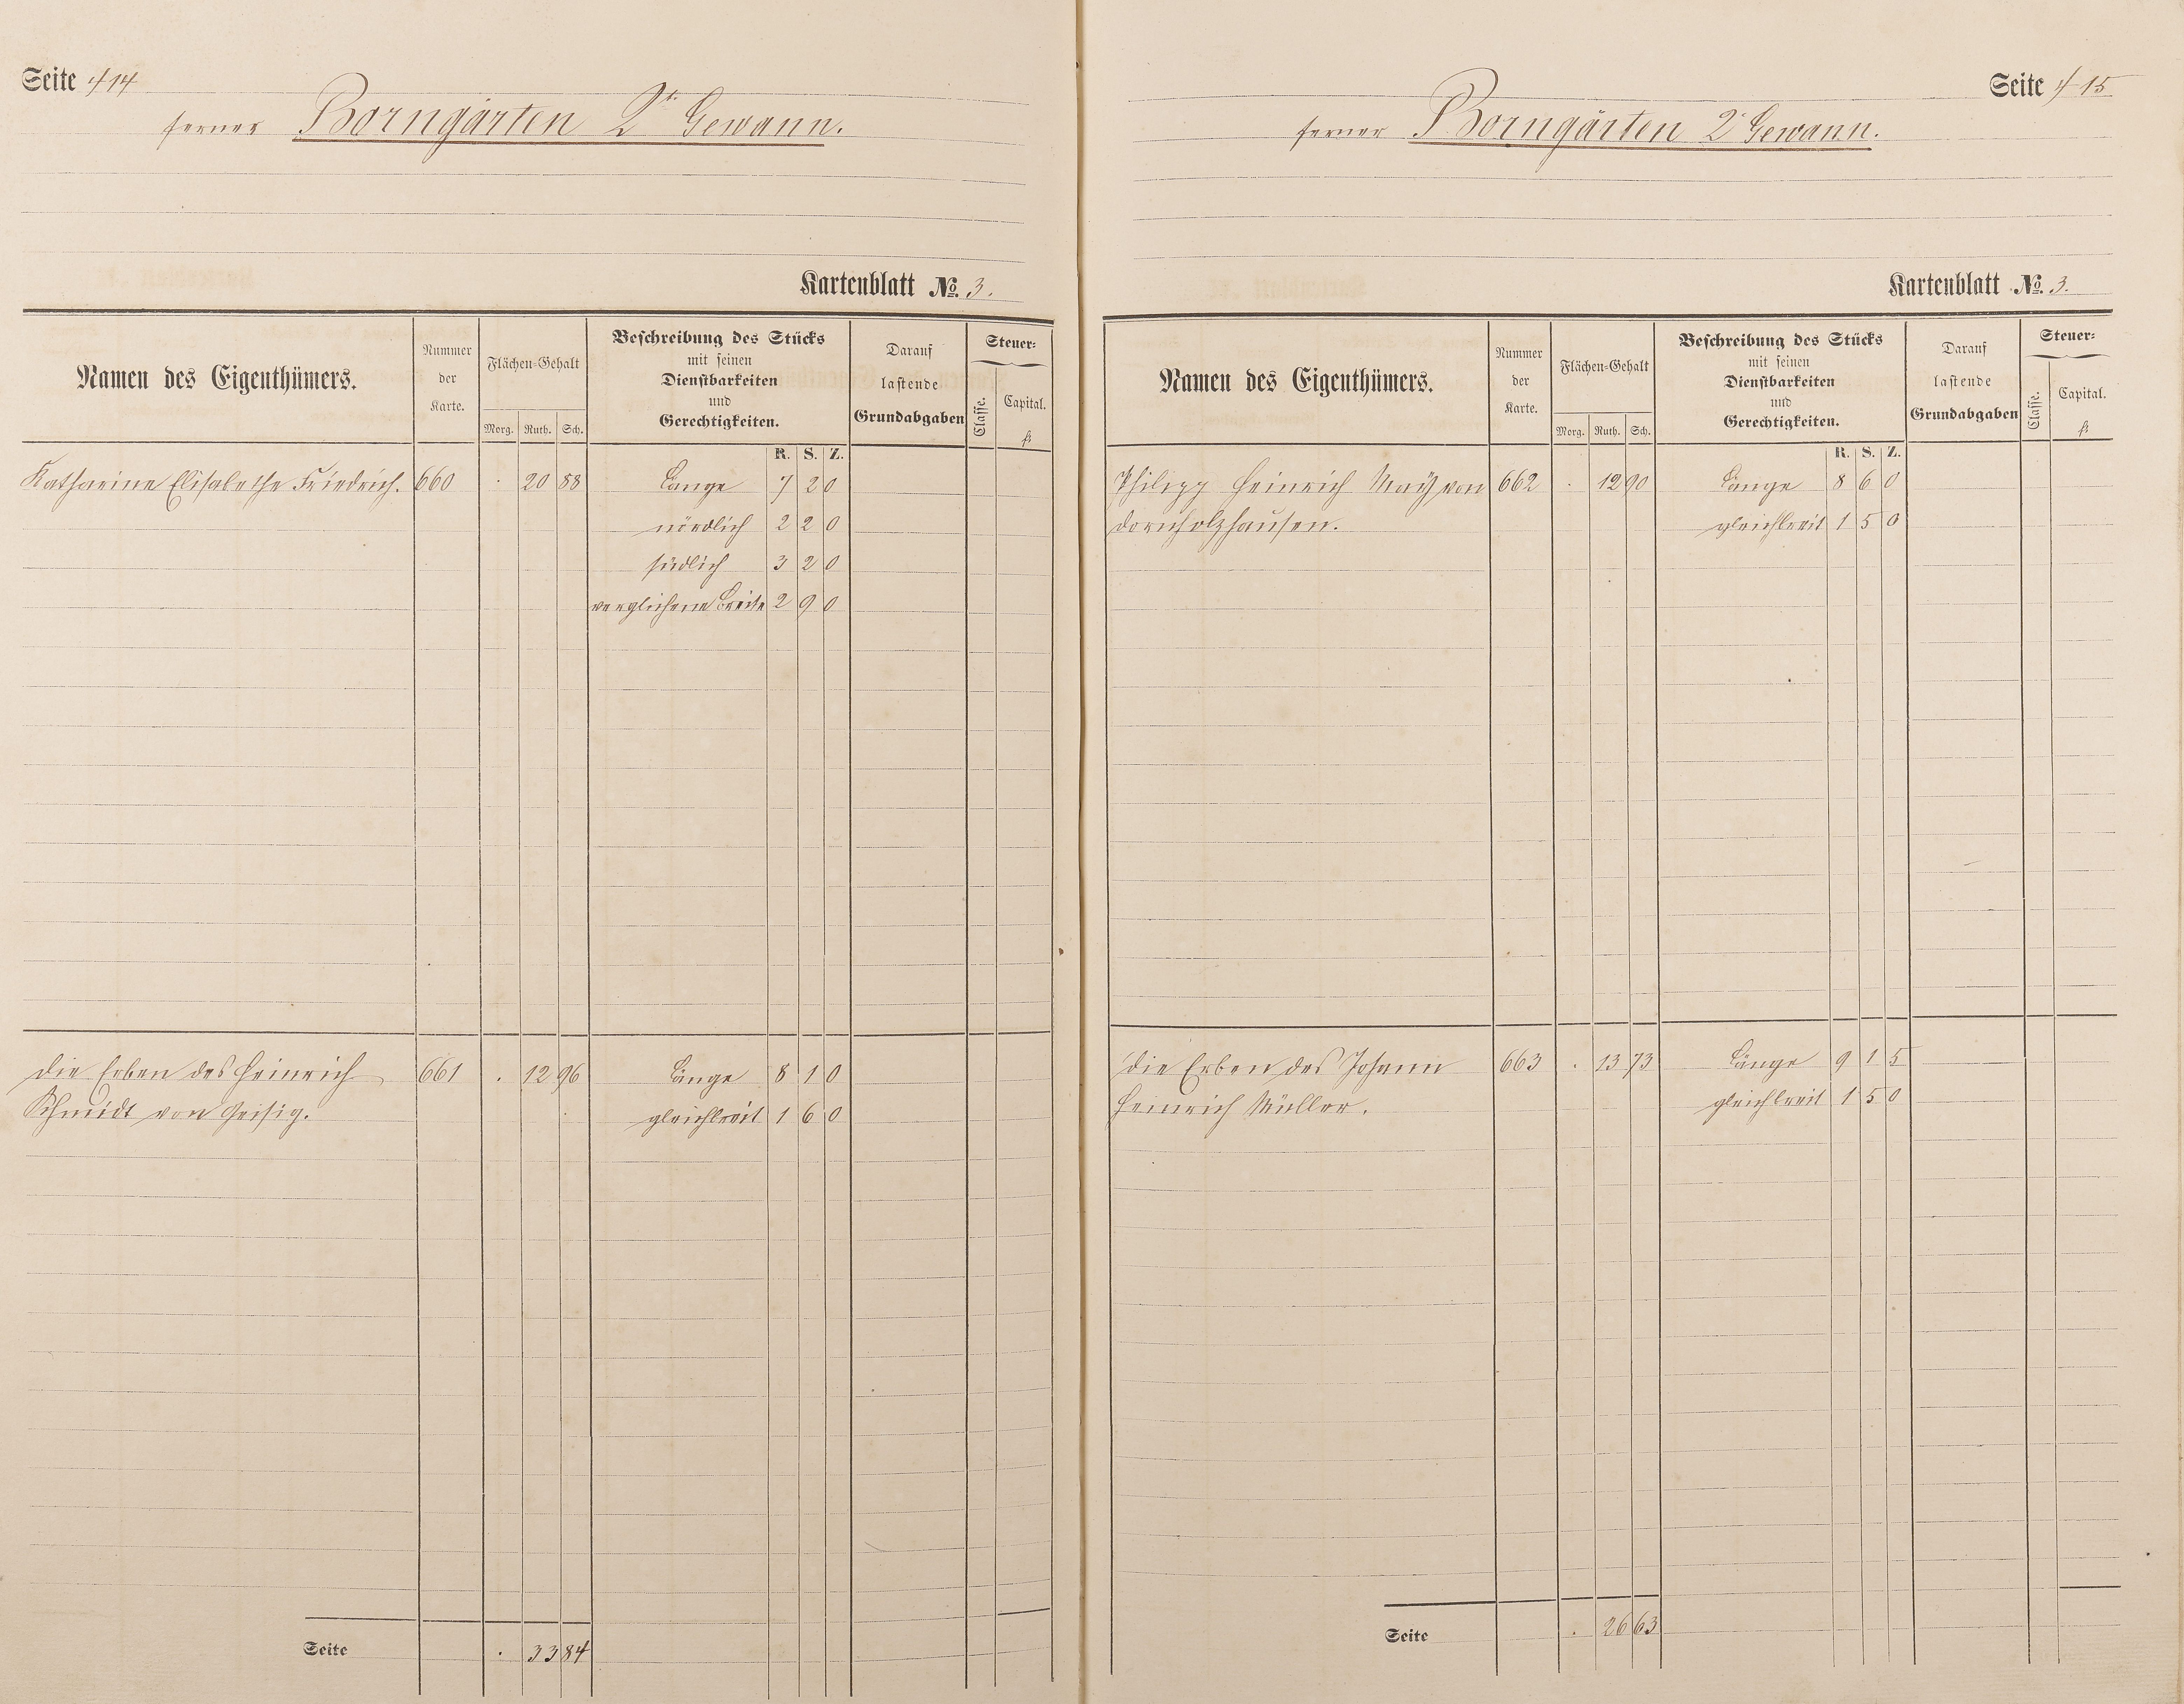 Seite 414
ferner Borngärten 2te Gewann.
Kartenblatt No. 3.
Namen des Eigenthümers.
Nummer der Karte.
Flächen-Gehalt
Morg. Ruth. Sch.
Beschreibung des Stücks
mit seinen
Dienstbarkeiten
und
Gerechtigkeiten.
Darauf
lastende
Grundabgaben
Steuer-
Classe. Capital.
fl.
R. S. Z.
Katharine Elisabethe Friedrich. 660 . 20 88 Länge 7 2 0
nördlich 2 2 0
südlich 3 2 0
verglichene Breite 2 9 0
die Erben des Heinrich 661 . 12 96 Länge 8 1 0
Schmidt von Geisig. gleichbreit 1 6 0
Seite . 33 84
Seite 415
ferner Borngärten 2te Gewann.
Kartenblatt No. 3.
Namen des Eigenthümers.
Nummer der Karte.
Flächen-Gehalt
Morg. Ruth. Sch.
Beschreibung des Stücks
mit seinen
Dienstbarkeiten
und
Gerechtigkeiten.
Darauf
lastende
Grundabgaben
Steuer-
Classe. Capital.
fl.
R. S. Z.
Philipp Heinrich Maÿ von 662 . 12 90 Länge 8 6 0
Dornholzhausen. gleichbreit 1 5 0
die Erben des Johann 663 . 13 73 Länge 9 1 5
Heinrich Müller. gleichbreit 1 5 0
Seite . 26 63